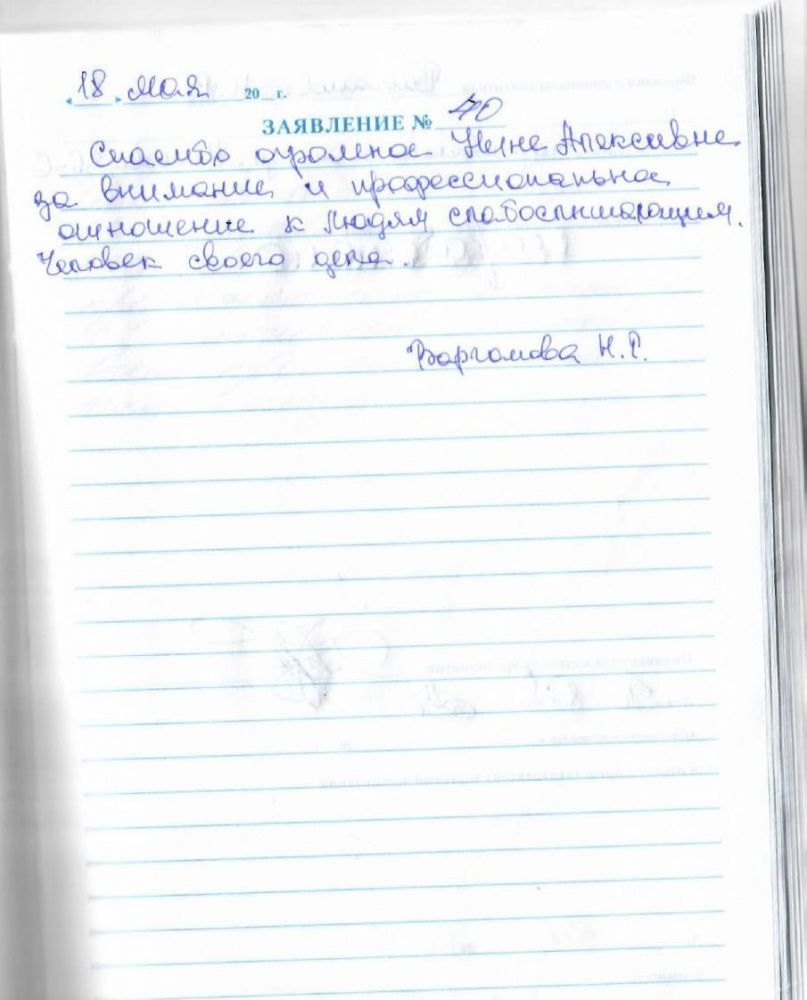 « 18 » мая 20 г.
ЗАЯВЛЕНИЕ № 40
Спасибо огромное Нине Алексевне
за внимание и профессиональное
отношение к людям слабослышащим.
Человек своего дела.
Варгамова Н.Р.